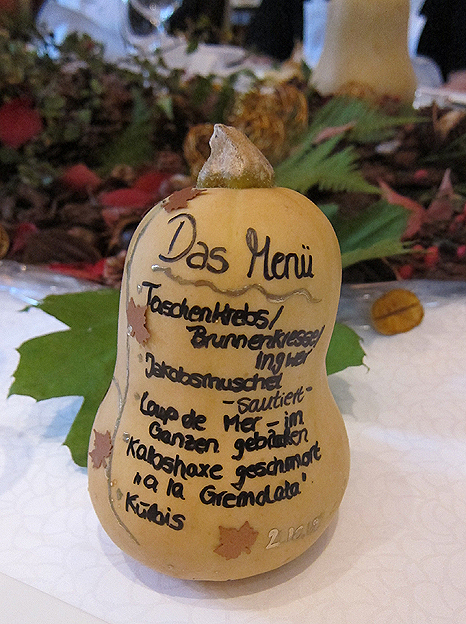 Das Menü
Taschenkrebs/
Brunnenkresse/
Ingwer
Jakobsmuschel
-sautiert-
Loup de Mer - im
Ganzen gebraten
Kalbshaxe geschmort
"a la Gremolata"
Kürbis